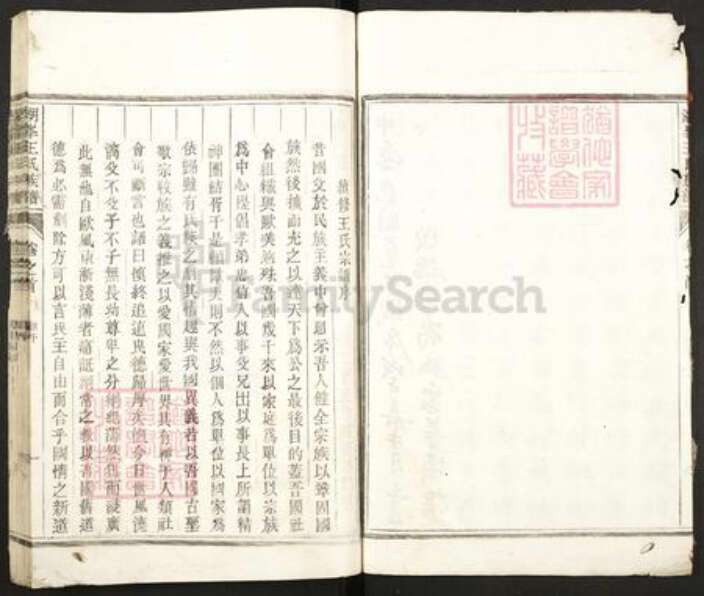 續修王氏宗譜序
昔國父於民族主義中曾昭示吾人健全宗族以鞏固國
族然後擴而充之以達天下為公之最後目的蓋吾國社
會組織與歐美迥殊吾國幾千來以家庭為單位以宗族
為中心提倡孝弟忠信入以事父兄出以事長上所謂精
神團結胥于是賴歐美則不然以個人為單位以國家為
依歸雖有氏族之別其情趣與我國異義者以吾國古聖
敬宗收族之義推之以愛國家愛世界其有裨于人類社
會可斷言也諸曰慎終追遠民德歸厚矣慨今日世風澆
漓父不父子不子無長幼尊卑之分
此無他自歐風東漸淺薄者痛詆綱常之教以吾國舊道
德為必需剷除方可以言民主自由而合乎國情之新道
湖峯王氏族譜
卷之首
FamilySearch